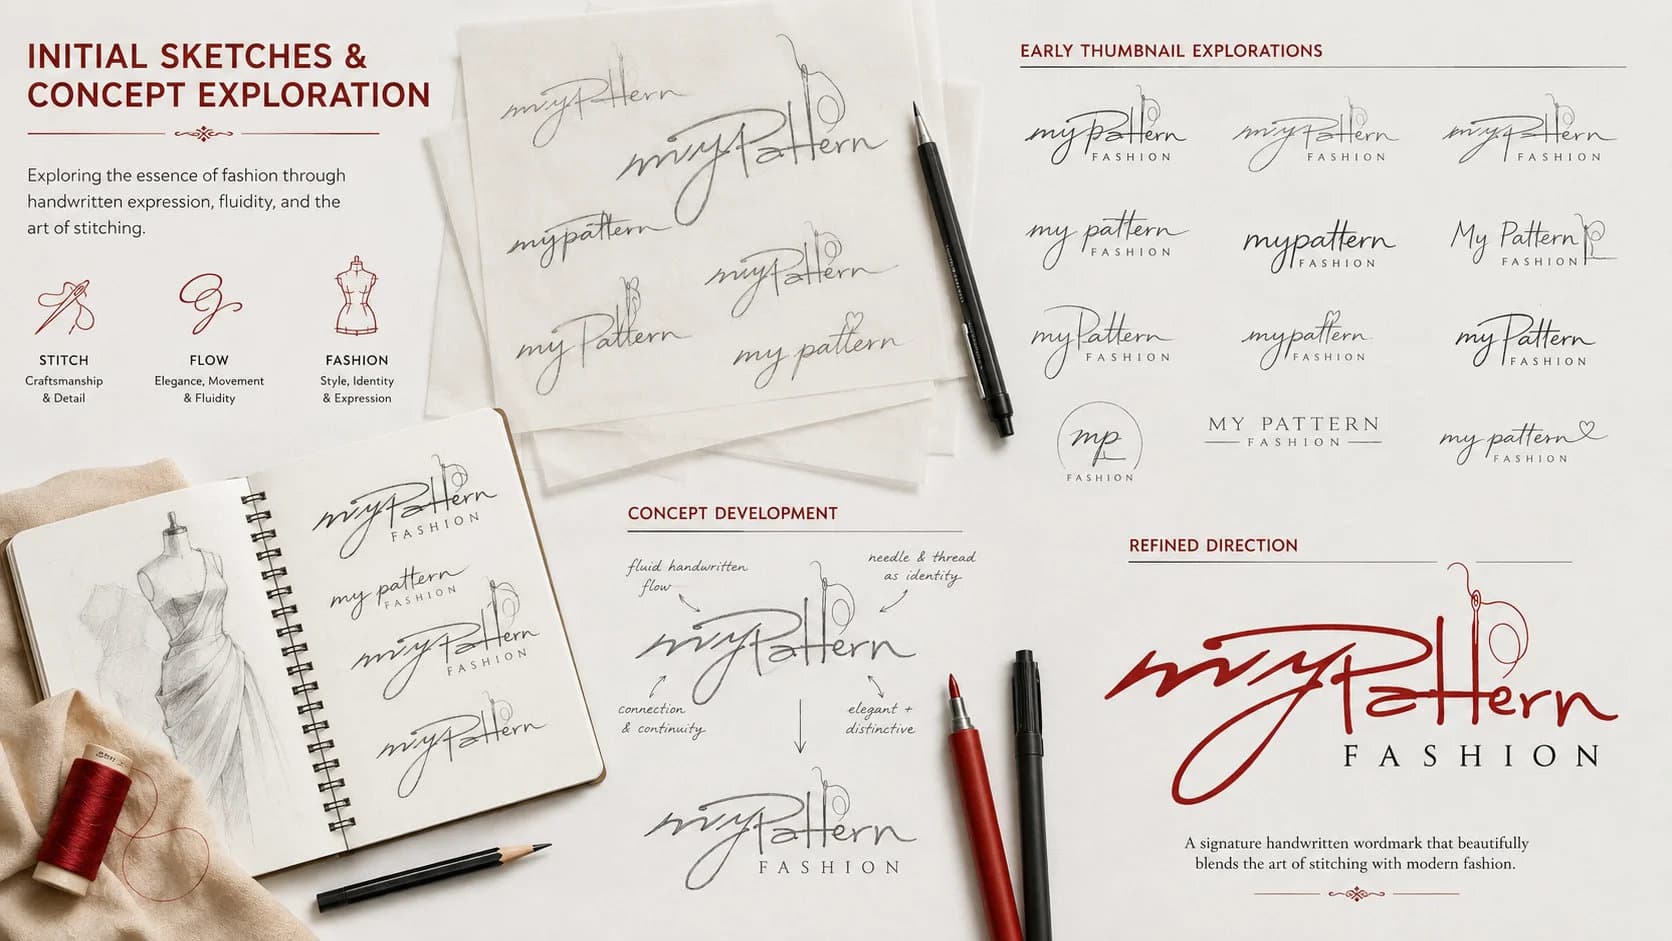 INITIAL SKETCHES &
CONCEPT EXPLORATION
Exploring the essence of fashion through
handwritten expression, fluidity, and the
art of stitching.
STITCH
Craftsmanship
& Detail
FLOW
Elegance, Movement
& Fluidity
FASHION
Style, Identity
& Expression
myPattern
myPattern
mypattern
myPattern
myPattern
my pattern
EARLY THUMBNAIL EXPLORATIONS
myPattern
FASHION
myPattern
FASHION
myPattern
FASHION
my pattern
FASHION
mypattern
FASHION
My Pattern
FASHION
myPattern
FASHION
mypattern
FASHION
myPattern
FASHION
mp
FASHION
MY PATTERN
FASHION
my pattern
FASHION
myPattern
FASHION
my pattern
FASHION
myPattern
FASHION
myPattern
CONCEPT DEVELOPMENT
fluid handwritten
flow
needle & thread
as identity
myPattern
connection
& continuity
elegant +
distinctive
myPattern
FASHION
REFINED DIRECTION
myPattern
FASHION
A signature handwritten wordmark that beautifully
blends the art of stitching with modern fashion.